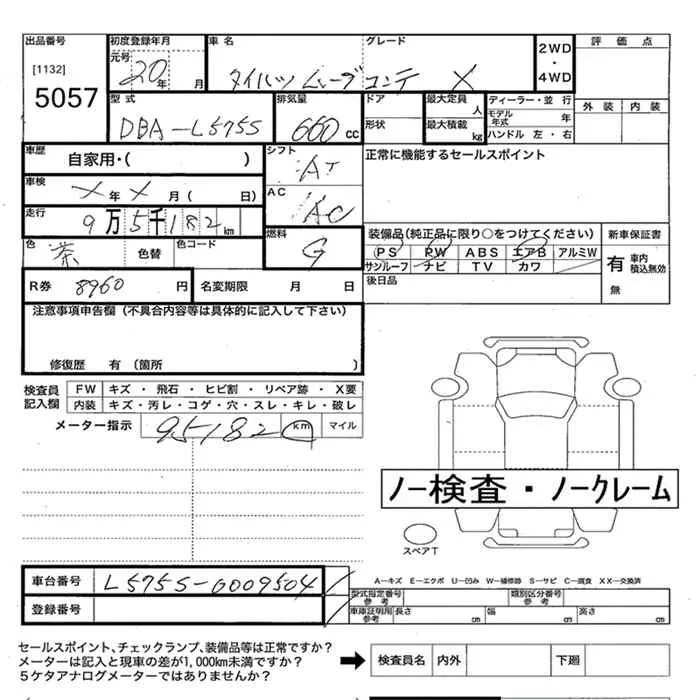 出品番号 初度登録年月 車名 グレード 2WD・4WD 評価点
[1132] 元号 20年 月 ダイハツ ムーブコンテ X
5057 型式 排気量 ドア 最大定員 人 ディーラー・並行 外装 内装
DBA-L575S 660cc 形状 最大積載 kg モデル年式 年
ハンドル 左・右
車歴 自家用・( ) シフト AT 正常に機能するセールスポイント
車検 X年X月( 日) AC AC
走行 9万5千182km 燃料 G 装備品(純正品に限り○をつけてください) 新車保証書
色 茶 色替 色コード PS PW ABS エアB アルミW 有 車内積込無効
サンルーフ ナビ TV カワ 無
R券 8960円 名変期限 月 日 後日品
注意事項申告欄(不具合内容等は具体的に記入して下さい)
修復歴 有(箇所 )
検査員記入欄 FW キズ・飛石・ヒビ割・リペア跡・X要
内装 キズ・汚レ・コゲ・穴・スレ・キレ・破レ
メーター指示 95182 km マイル
ノー検査・ノークレーム
スペアT
車台番号 L575S-0009504
A—キズ E—エクボ U—凹み W—補修跡 S—サビ C—腐食 XX—交換済
登録番号 型式指定番号 参考 類別区分番号 参考
車庫証明用参考 長さ cm 幅 cm 高さ cm
セールスポイント、チェックランプ、装備品等は正常ですか?
メーターは記入と現車の差が1,000km未満ですか?
5ケタアナログメーターではありませんか?
検査員名 内外 下廻